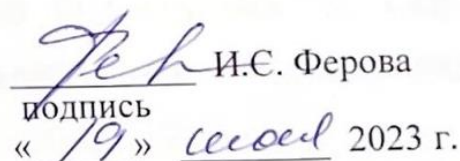 И.С. Ферова
подпись
« 19 » 2023 г.